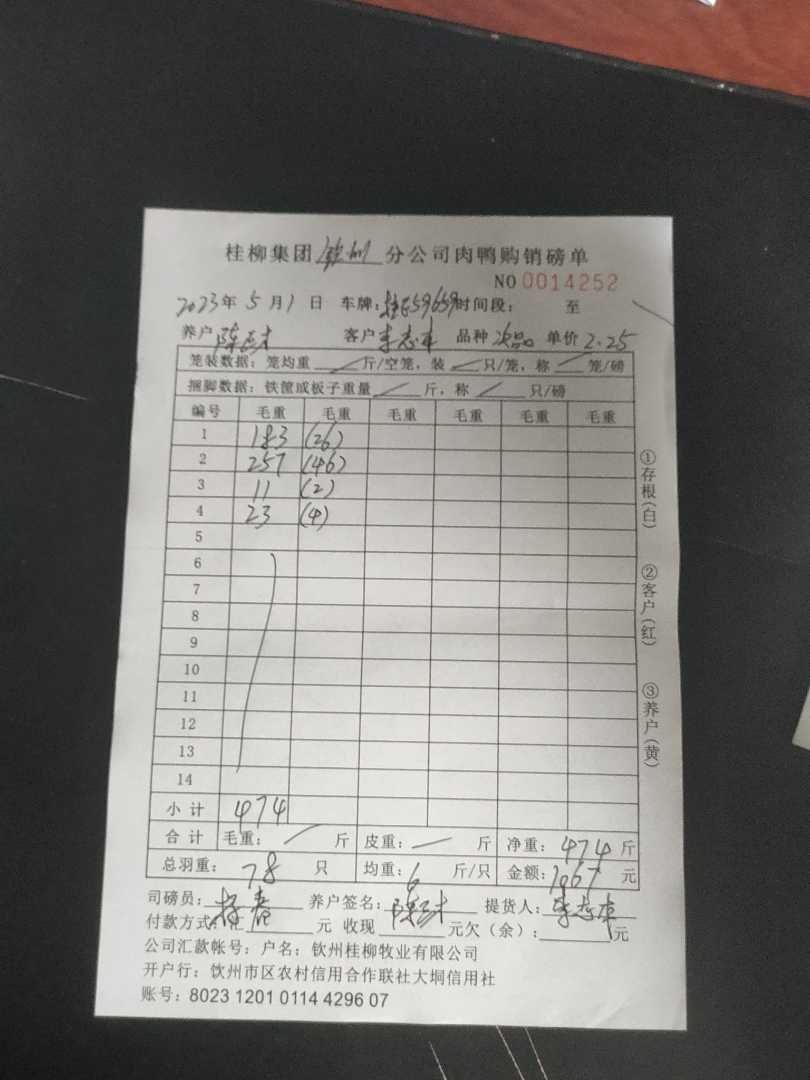 桂柳集团 钦州 分公司肉鸭购销磅单
NO 0014252
2023年 5月1日 车牌:桂E59659 时间段: 至
养户 客户 李志 品种 次品 单价 2.25
笼装数据: 笼均重 斤/空笼, 装 只/笼, 称 笼/磅
捆脚数据: 铁筐或板子重量 斤, 称 只/磅
编号 毛重 毛重 毛重 毛重 毛重 毛重
1 183 (26)
2 257 (46)
3 11 (2)
4 23 (4)
5
6
7
8
9
10
11
12
13
14
小计 474
合计 毛重: 斤 皮重: 斤 净重: 474 斤
总羽重: 78 只 均重: 6 斤/只 金额: 1067 元
司磅员: 养户签名: 提货人: 李志
付款方式: 汇 元 收现 元欠(余): 元
公司汇款帐号: 户名: 钦州桂柳牧业有限公司
开户行: 钦州市区农村信用合作联社大垌信用社
账号: 8023 1201 0114 4296 07
①存根(白)
②客户(红)
③养户(黄)